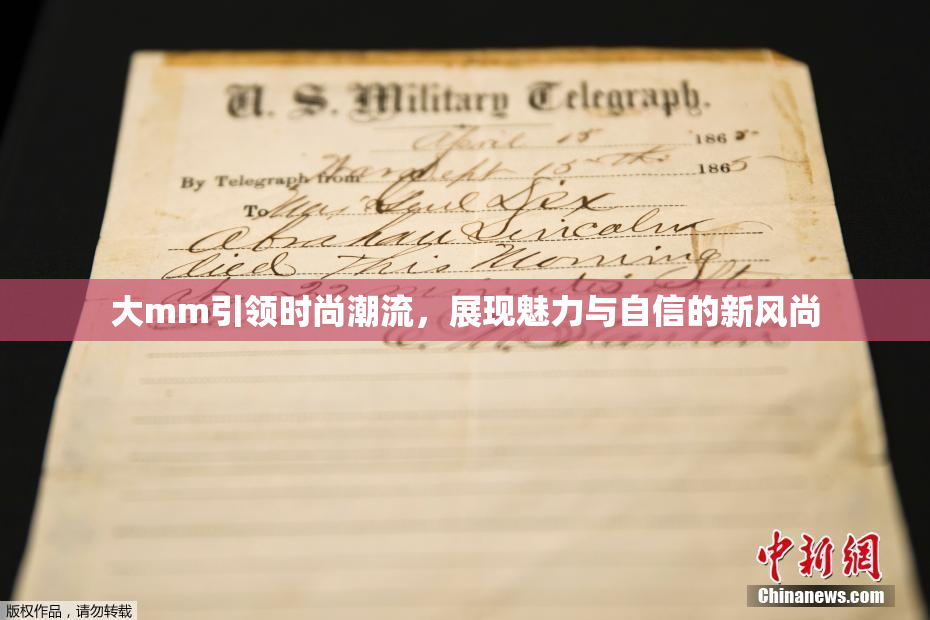 U. S. Military Telegraph.
April 15 1865
By Telegraph from War Dept 15th 1865
To Maj Genl Dix
Abraham Lincoln
died This Morning
at 22 minutes after
大mm引领时尚潮流，展现魅力与自信的新风尚
E. M. Stanton
中新网
Chinanews.com
版权作品，请勿转载